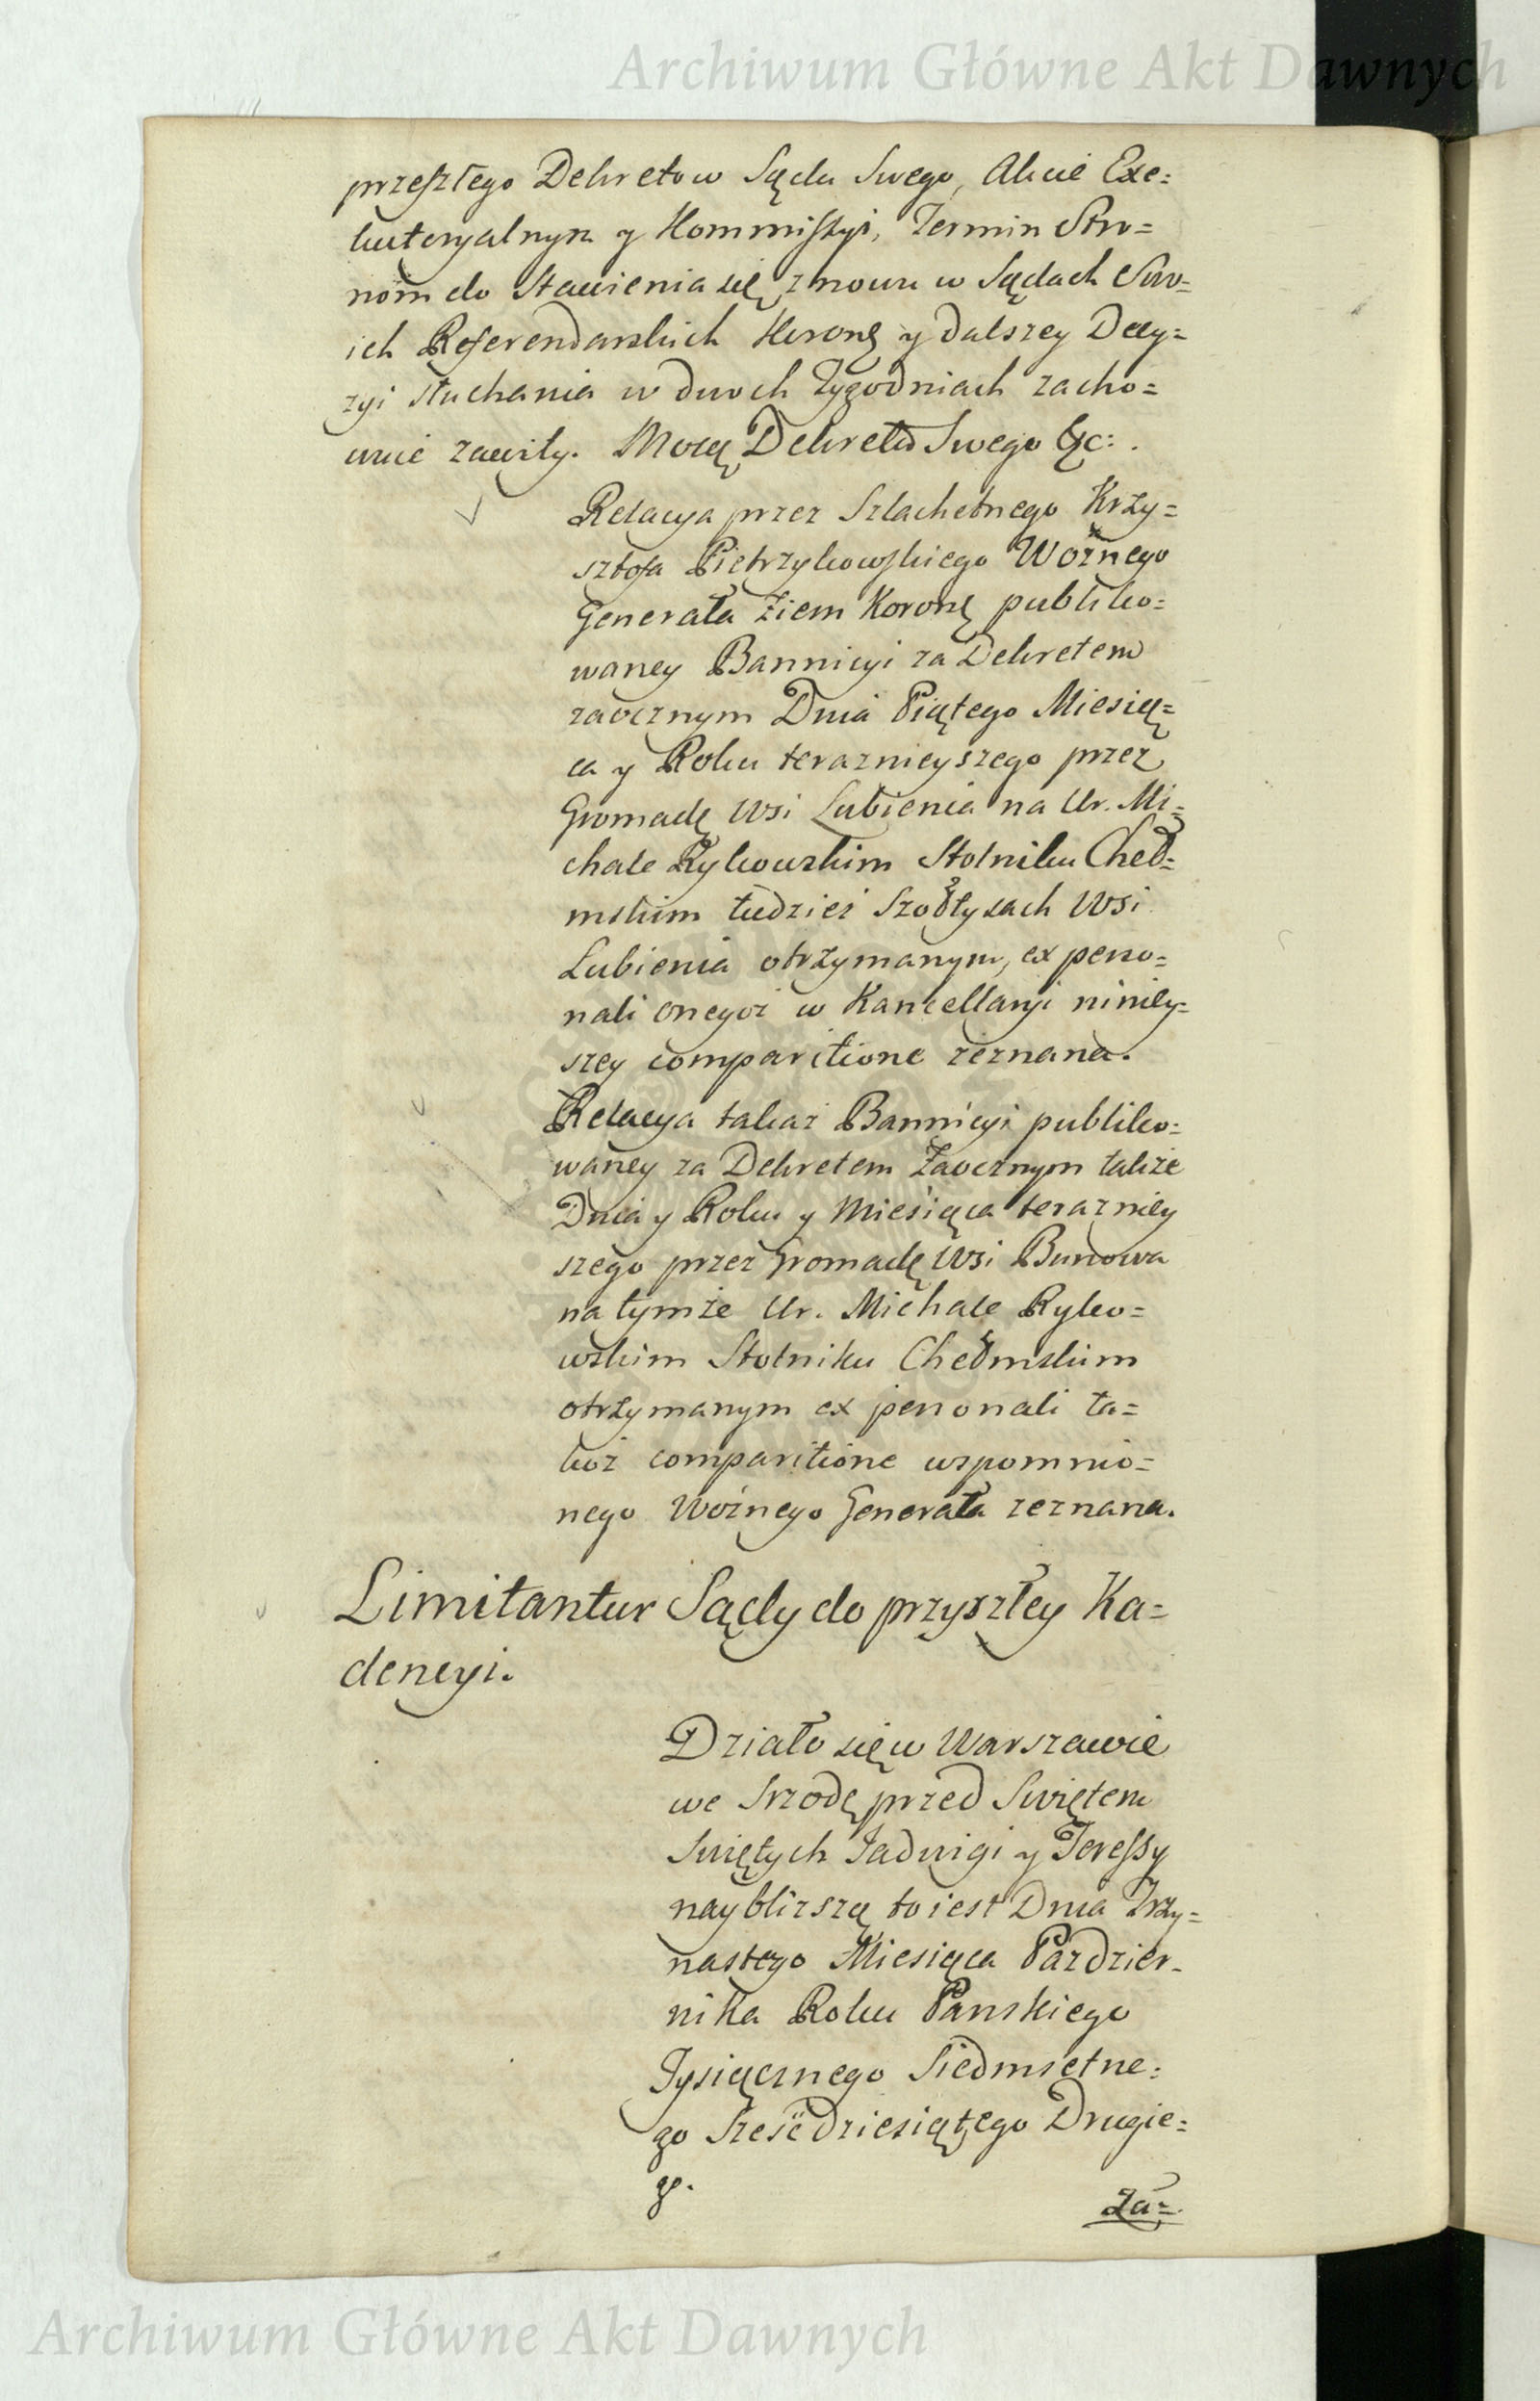 Archiwum Główne Akt Dawnych
przeszłego Dekretow Sądu Swego, Akcie Exe=
kuteryalnym y Kommissyi, Termin Stro=
nom do Stawienia się znowu w Sądach Swo=
ich Referendarskich Koronę y dalszey Decy=
zyi słuchania w dwoch Tygodniach zacho=
wuie zawity. Mocą Dekretu Swego &c: .
Relacya przez Szlachetnego Krzy=
sztofa Pietrzykowskiego Woźnego
Generała Ziem Koronę publiko=
waney Bannicyi za Dekretem
zaocznym Dnia Piątego Miesią=
ca y Roku teraznieyszego przez
Gromadę Wsi Lubienia na Ur. Mi=
chale Rykowskim Stolniku Cheł=
mskim tudzież Szołtysach Wsi
Lubienia otrzymanym, ex perso=
nali onegoż w Kancellaryi niniey=
szey comparitione zeznana.
Relacya takaż Bannicyi publiko=
waney za Dekretem Zaocznym także
Dnia y Roku y Miesiąca terazniey
szego przez Gromadę Wsi Bunowa
na tymże Ur. Michale Ryko=
wskim Stolniku Chełmskim
otrzymanym ex personali ta=
koż comparitione wspomnio=
nego Woźnego Generała zeznana.
Limitantur Sądy do przyszłey Ka=
dencyi.
Działo się w Warszawie
we Srzodę przed Swiętem
Swiętych Jadwigi y Teressy
nayblizszą to iest Dnia Trzy=
nastego Miesiąca Pazdzier-
nika Roku Panskiego
Tysiącznego Siedmsetne=
go Sześćdziesiątego Drugie=
go.
Za=
Archiwum Główne Akt Dawnych